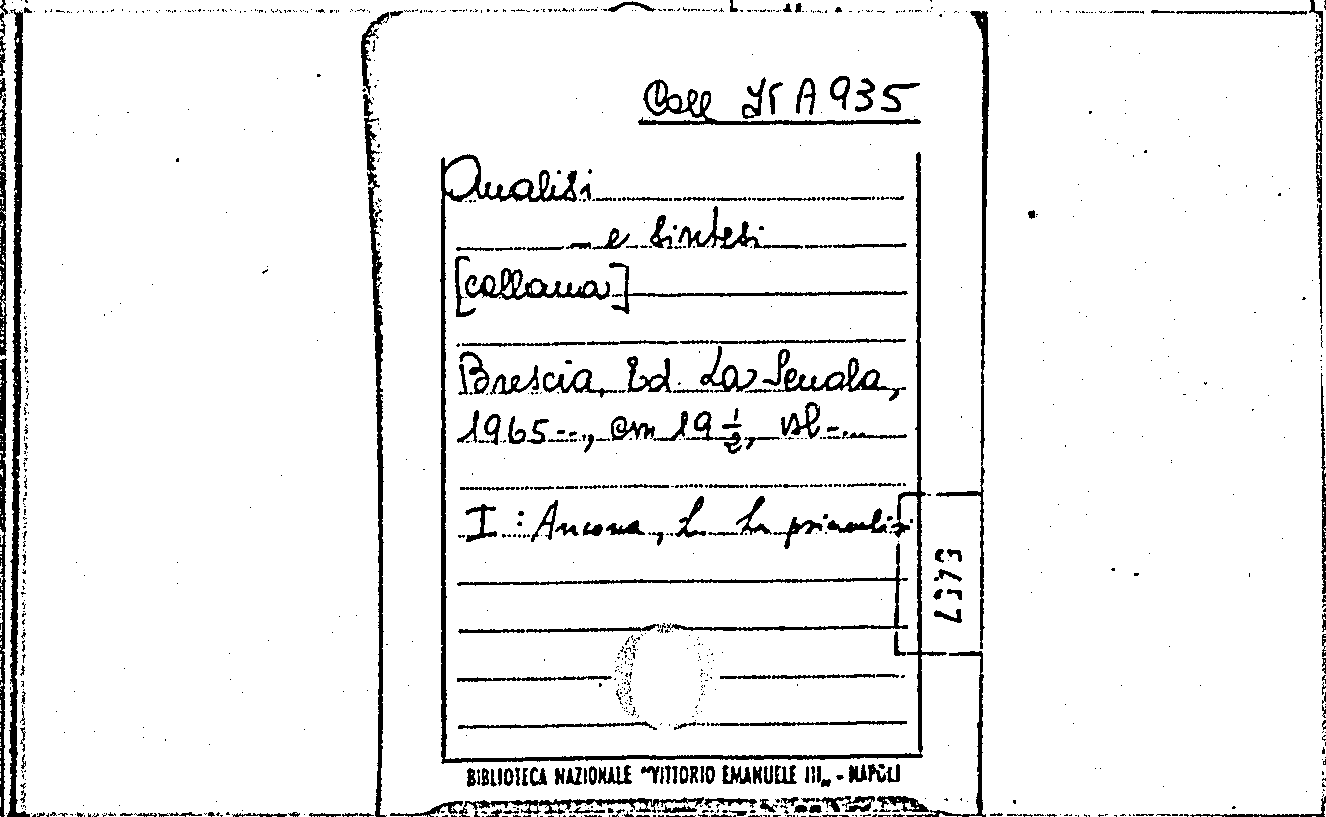 Coll It A 935
Analisi
— e sintesi
[collana]
Brescia, Ed. La Scuola,
1965--, cm 19 1/2, vl-...
I : Ancona, L. La psicanalisi
BIBLIOTECA NAZIONALE "VITTORIO EMANUELE III„ - NAPOLI